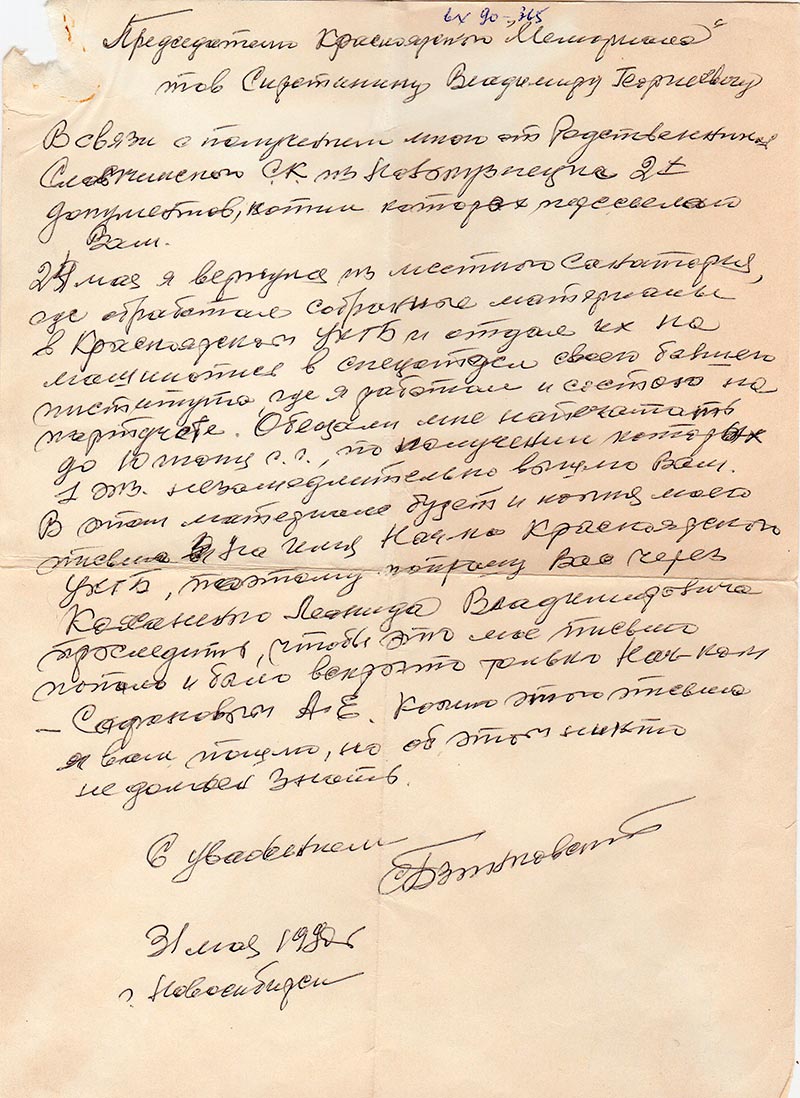 вх 90-365
Председателю Красноярского "Мемориала"
тов Сиротинину Владимиру Георгиевичу
В связи с получением мною от Родственников
С.К. из Новокузнецка 2х
документов, копии которых пересылаю
Вам.
24 мая я вернулся из местного санатория,
где обработал собранные материалы
в Красноярском УКГБ и отдал их на
машинопись в спецотдел своего бывшего
института, где я работал и состою на
партучете. Обещали мне напечатать
до 10 июня с.г., по получении которых
1 экз. незамедлительно вышлю Вам.
В этом материале будет и копия моего
письма на имя Нач-ка Красноярского
УКГБ, поэтому попрошу Вас через
Леонида Владимировича
проследить, чтобы это мое письмо
попало и было вскрыто только Нач-ком
– Сафоновым А.Е. Копию этого письма
я вам пошлю, но об этом никто
не должен знать.
С уважением
31 мая 1990г
г. Новосибирск